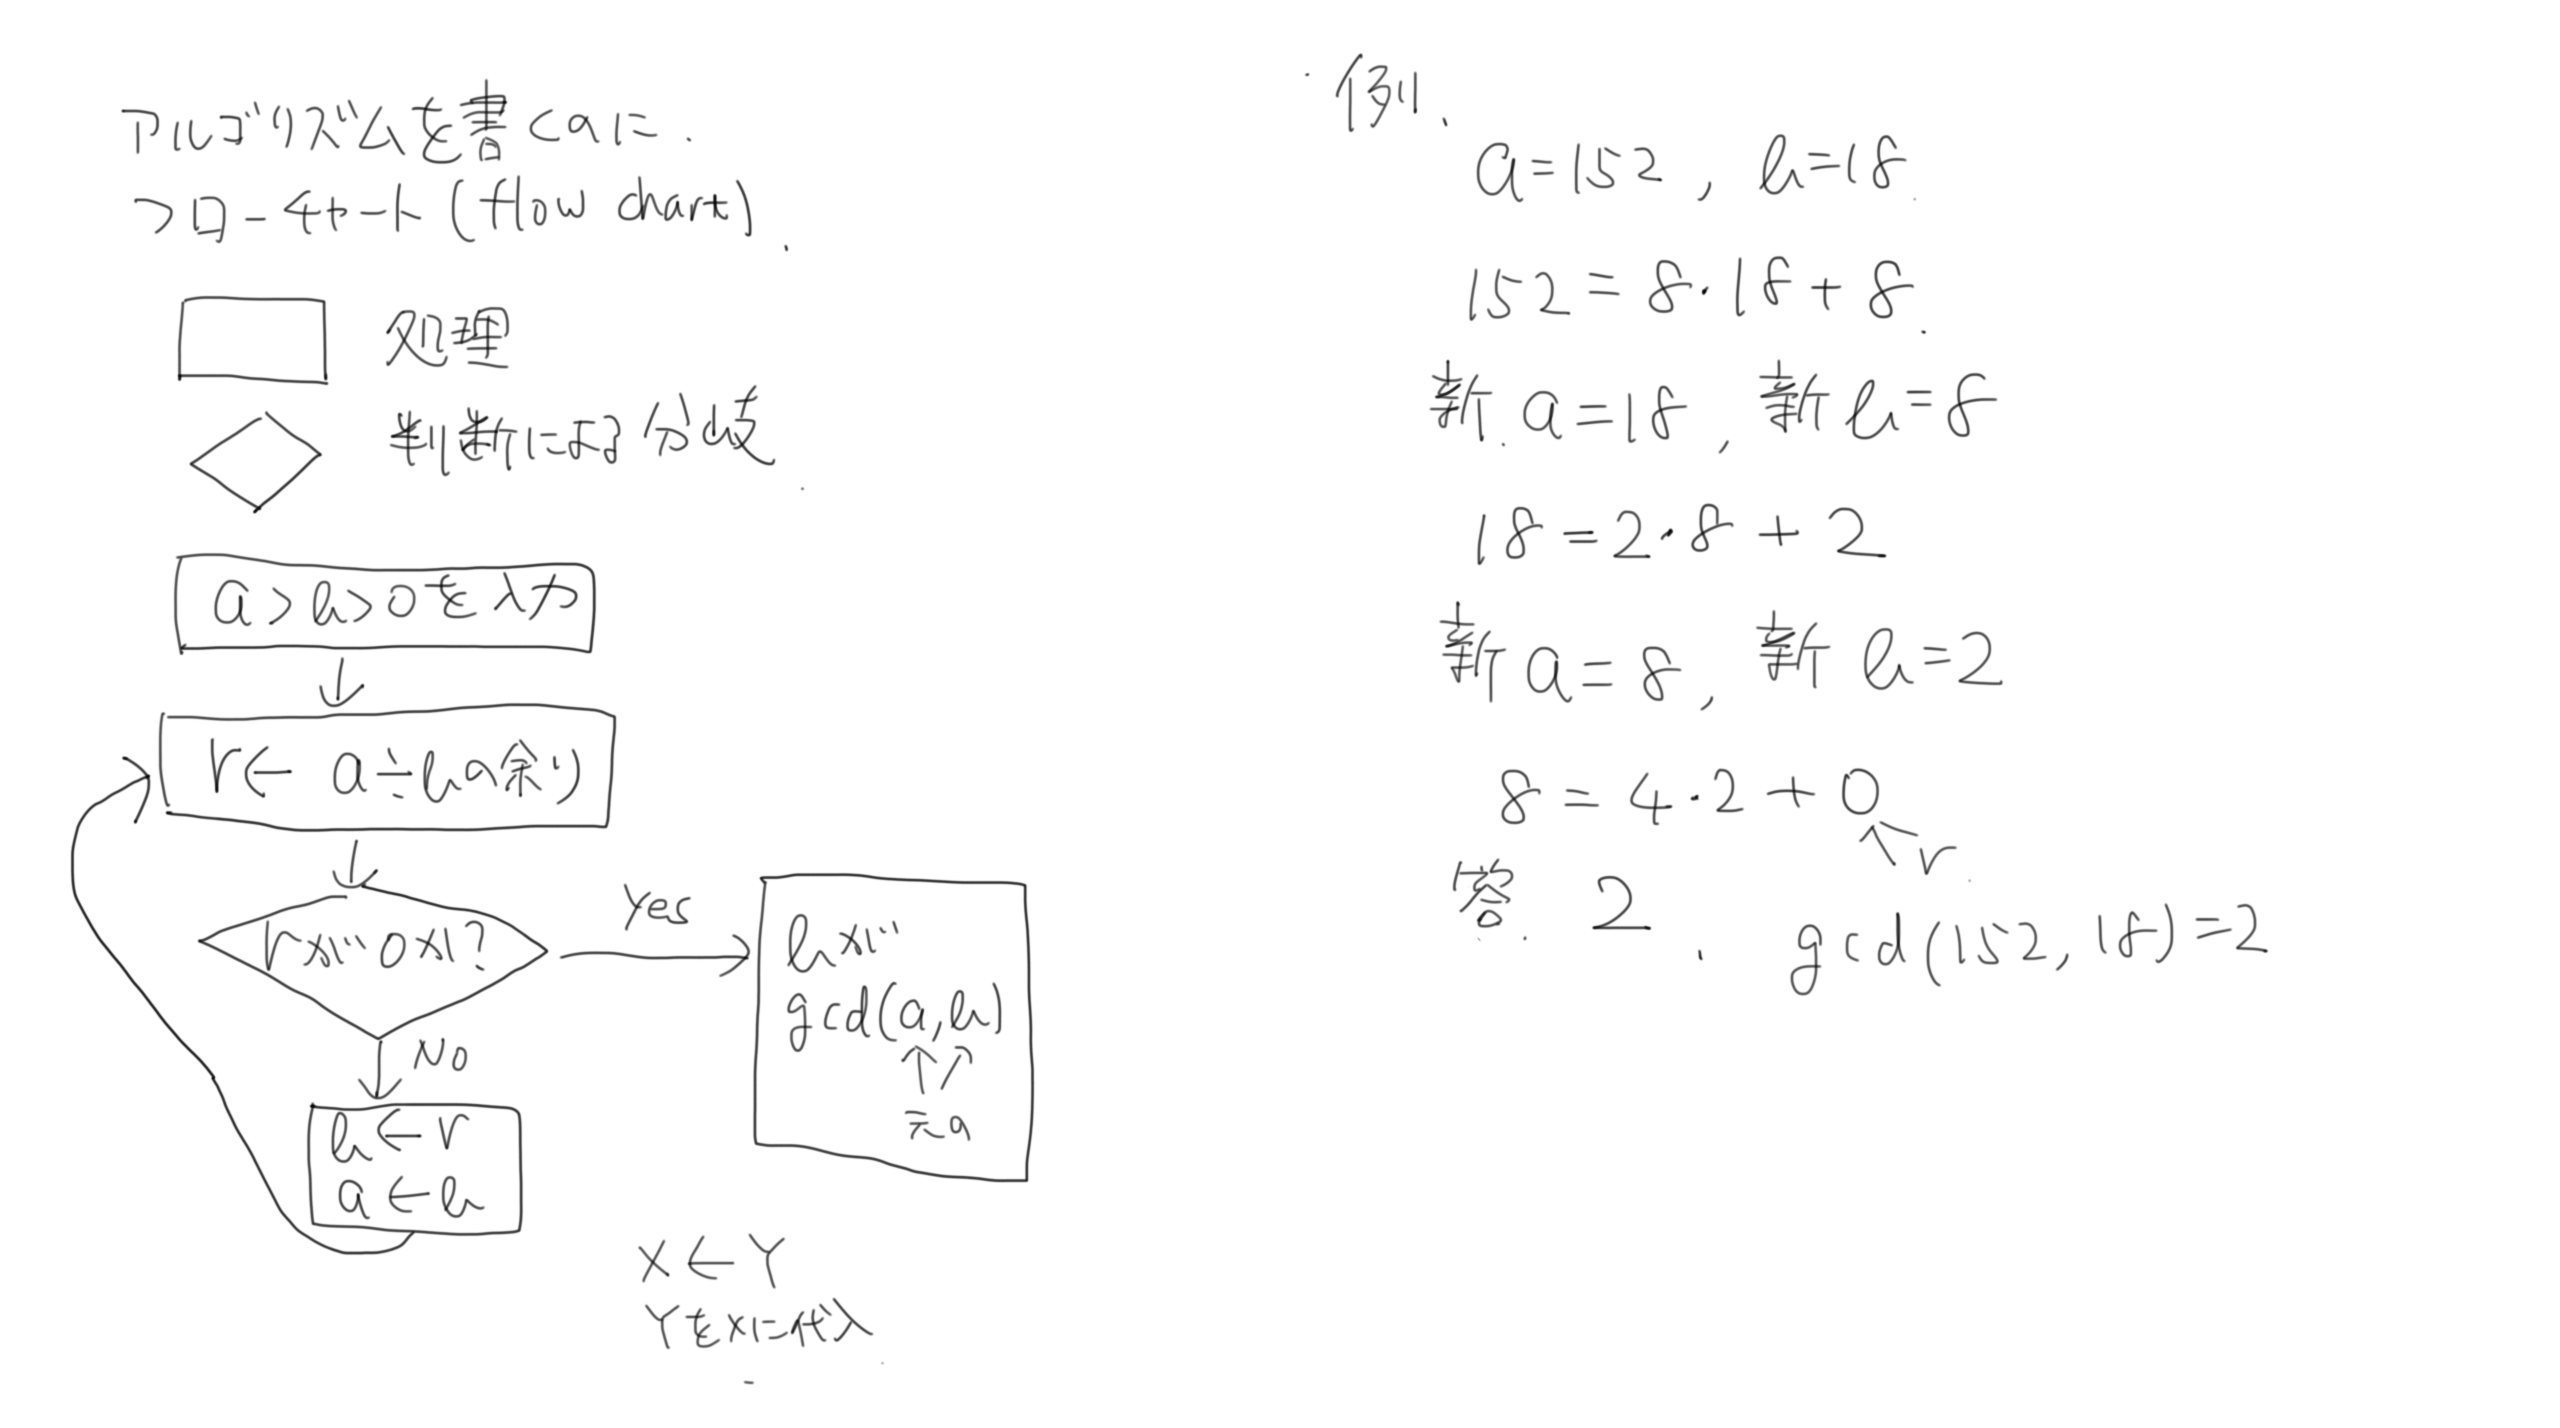 アルゴリズムを書くのに.
フローチャート(flow chart).
処理
判断による分岐
a>b>0を入力
r← a÷bの余り
rが0か?
Yes
bが
gcd(a,b)
↑↗
元の
No
b←r
a←b
X←Y
YをXに代入
例.
a=152, b=18
152=8・18+8.
新.a=18, 新b=8
18=2・8+2
新a=8, 新b=2
8=4・2+0
↖r
答. 2. gcd(152,18)=2